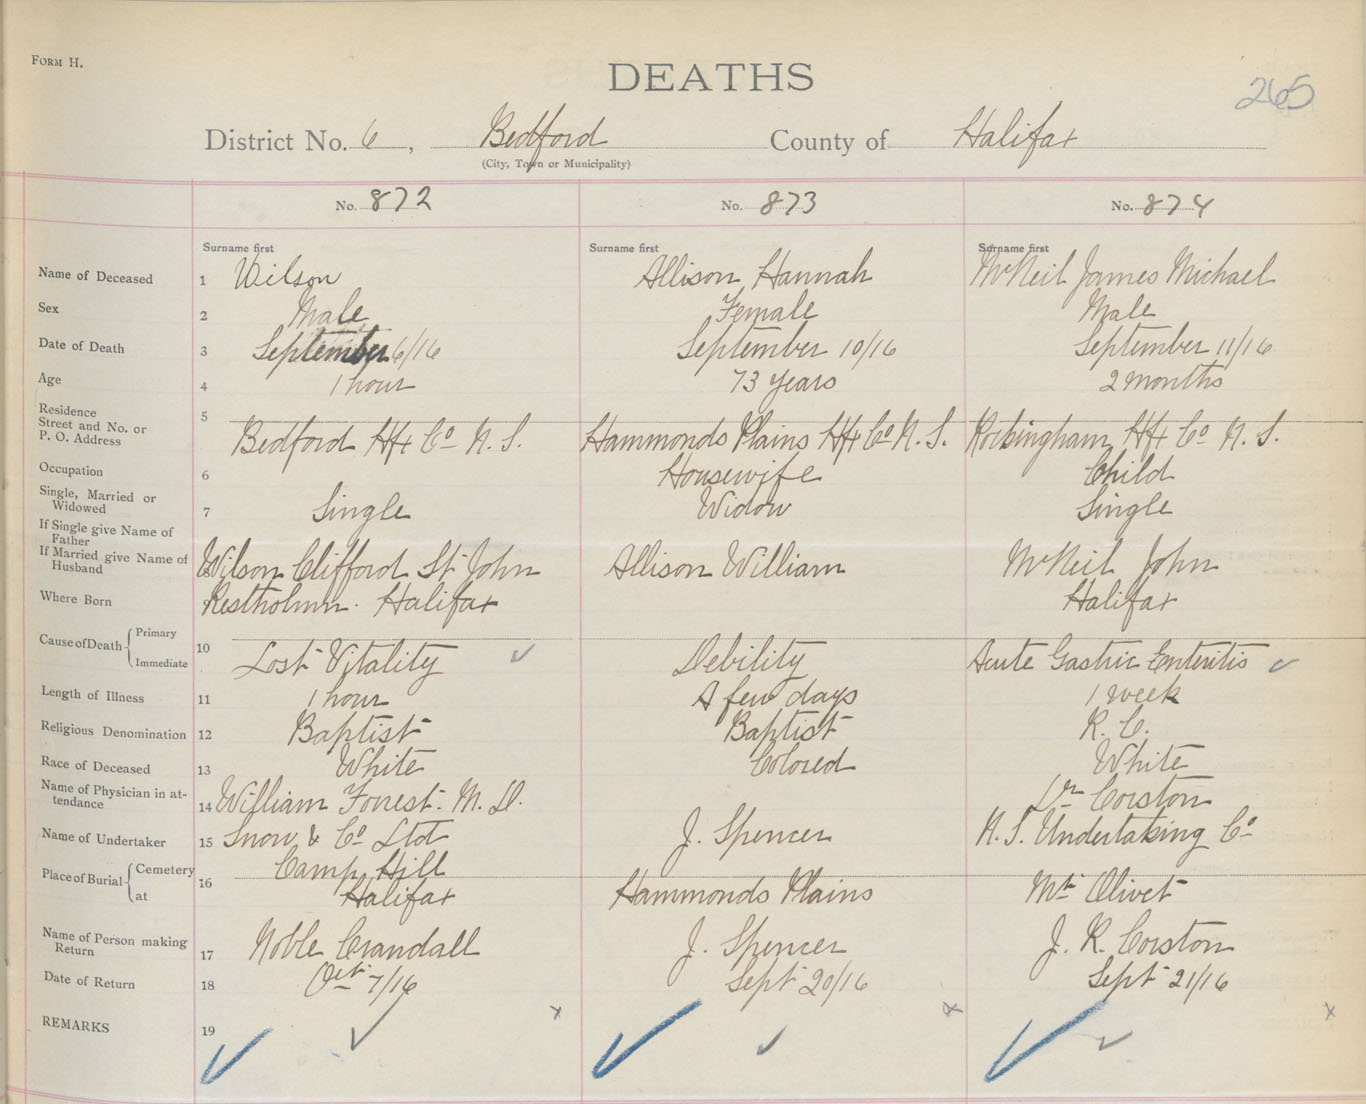 FORM H.
DEATHS
265
District No. 6, Bedford County of Halifax
(City, Town or Municipality)
No. 872 No. 873 No. 874
Surname first Surname first Surname first
Name of Deceased 1 Wilson Allison Hannah McNeil James Michael
Sex 2 Male Female Male
Date of Death 3 September 6/16 September 10/16 September 11/16
Age 4 1 hour 73 years 2 months
Residence Street and No. or P. O. Address 5 Bedford Hfx Co N. S. Hammonds Plains Hfx Co N. S. Rockingham Hfx Co N. S.
Occupation 6 Housewife Child
Single, Married or Widowed 7 Single Widow Single
If Single give Name of Father
If Married give Name of Husband 8 Wilson Clifford St John Allison William McNeil John
Where Born Halifax Halifax
Cause of Death Primary Immediate 10 Lost Vitality Debility Acute Gastric Enteritis
Length of Illness 11 1 hour A few days 1 week
Religious Denomination 12 Baptist Baptist R. C.
Race of Deceased 13 White Colored White
Name of Physician in attendance 14 William Forrest. M. D. Dr Corston
Name of Undertaker 15 Snow & Co Ltd J. Spencer N. S. Undertaking Co
Place of Burial Cemetery at 16 Camp Hill Halifax Hammonds Plains Mt Olivet
Name of Person making Return 17 Noble Crandall J. Spencer J. R. Corston
Date of Return 18 Oct 7/16 Sept 20/16 Sept 21/16
REMARKS 19